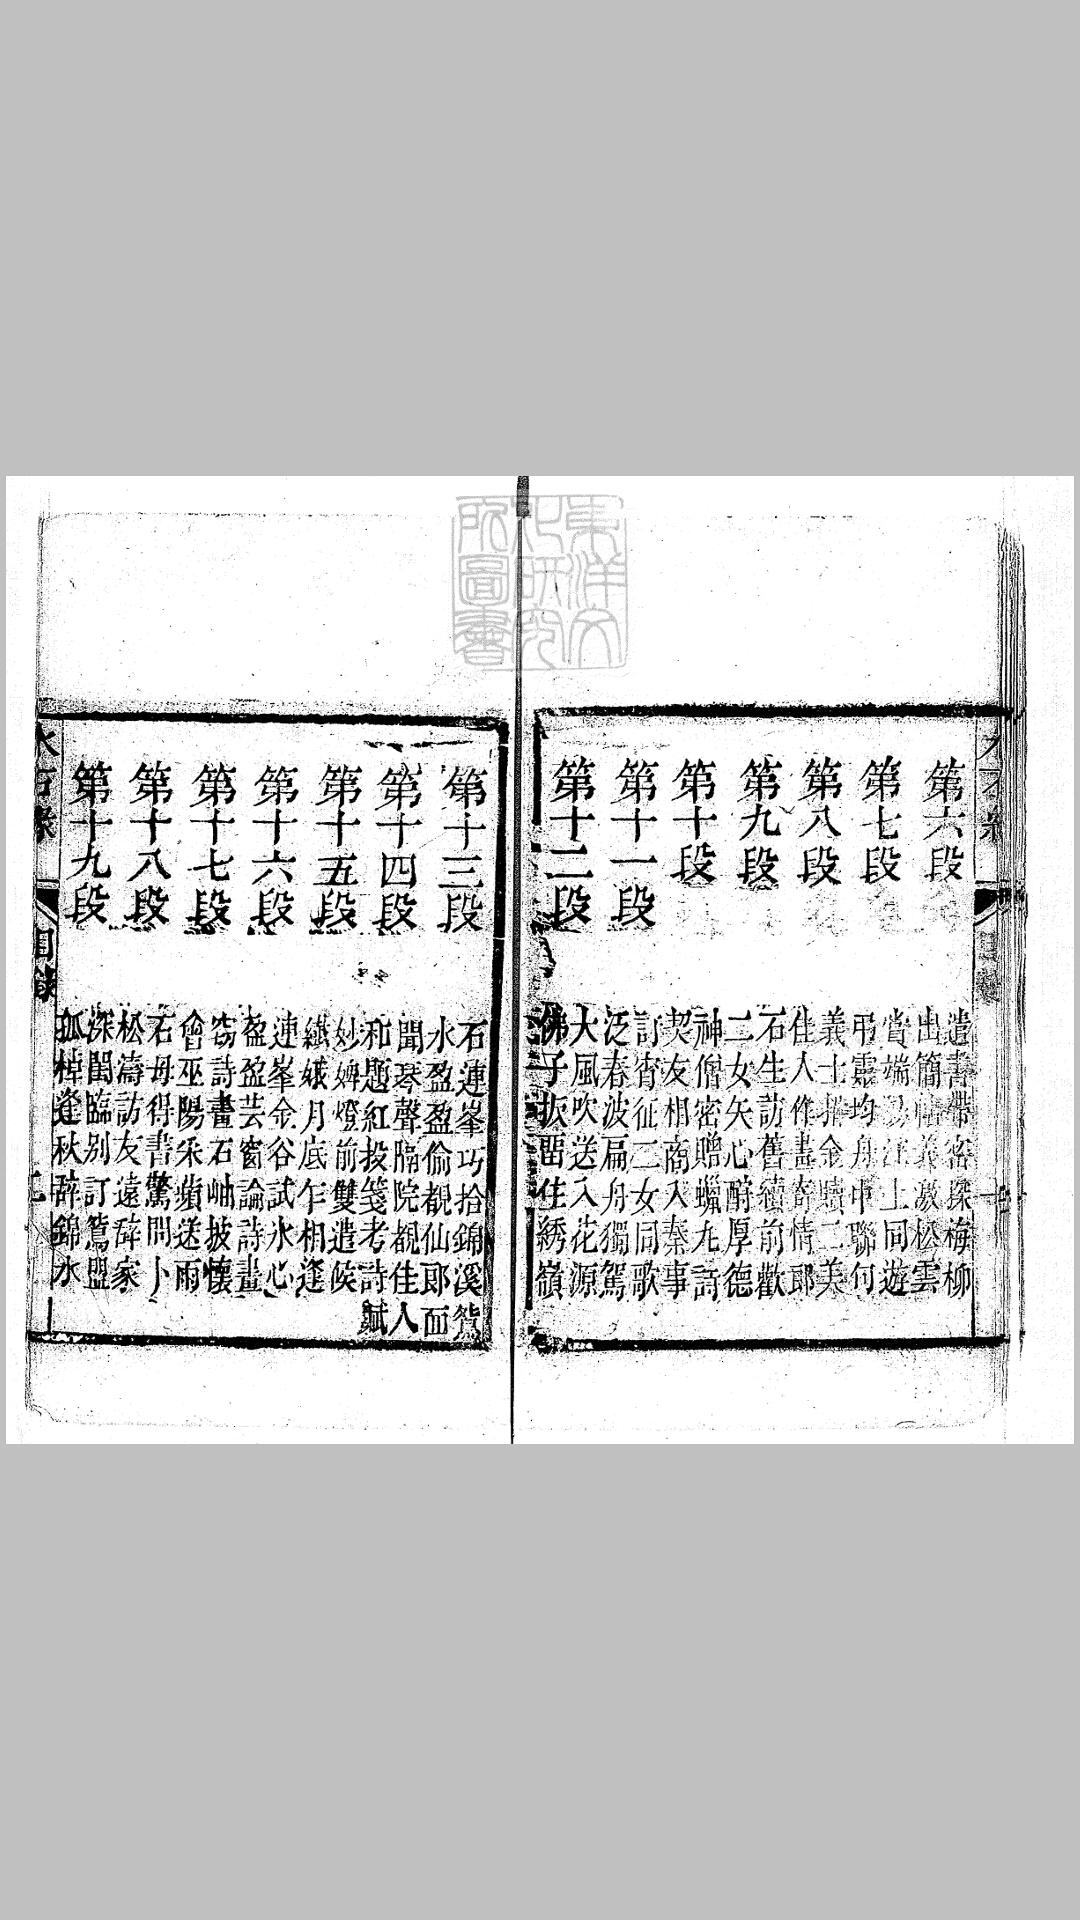 東洋文
化研究
所圖書
第六段
遺書帶密探梅柳
出簡義激松雲
第七段
賞端江上同遊
弔靈均舟中聯句
第八段
義士揮金贖二美
佳人作畫寄情郎
第九段
石生訪舊續前歡
二女矢心酧厚德
第十段
神僧密贈蠟丸詩
契友相商入秦事
第十一段
訂宵征二女同歌
泛春波扁舟獨駕
第十二段
大風吹送入花源
佛子扳畱住綉嶺
第十三段
石蓮峯巧拾錦溪箋
水盈盈偷覩仙郎面
第十四段
聞琴聲隔院覩佳人
和題紅投箋考詩賦
第十五段
妙婢燈前雙遣候
纖娥月底乍相逢
第十六段
連峯金谷試氷心
盈盈芸窗論詩畫
第十七段
窃詩書石岫披懷
會巫陽采蘋送雨
第十八段
石母得書驚問卜
松濤訪友遠辞家
第十九段
深閨臨别訂鴛盟
孤棹逢秋辞錦水
水石緣 目錄